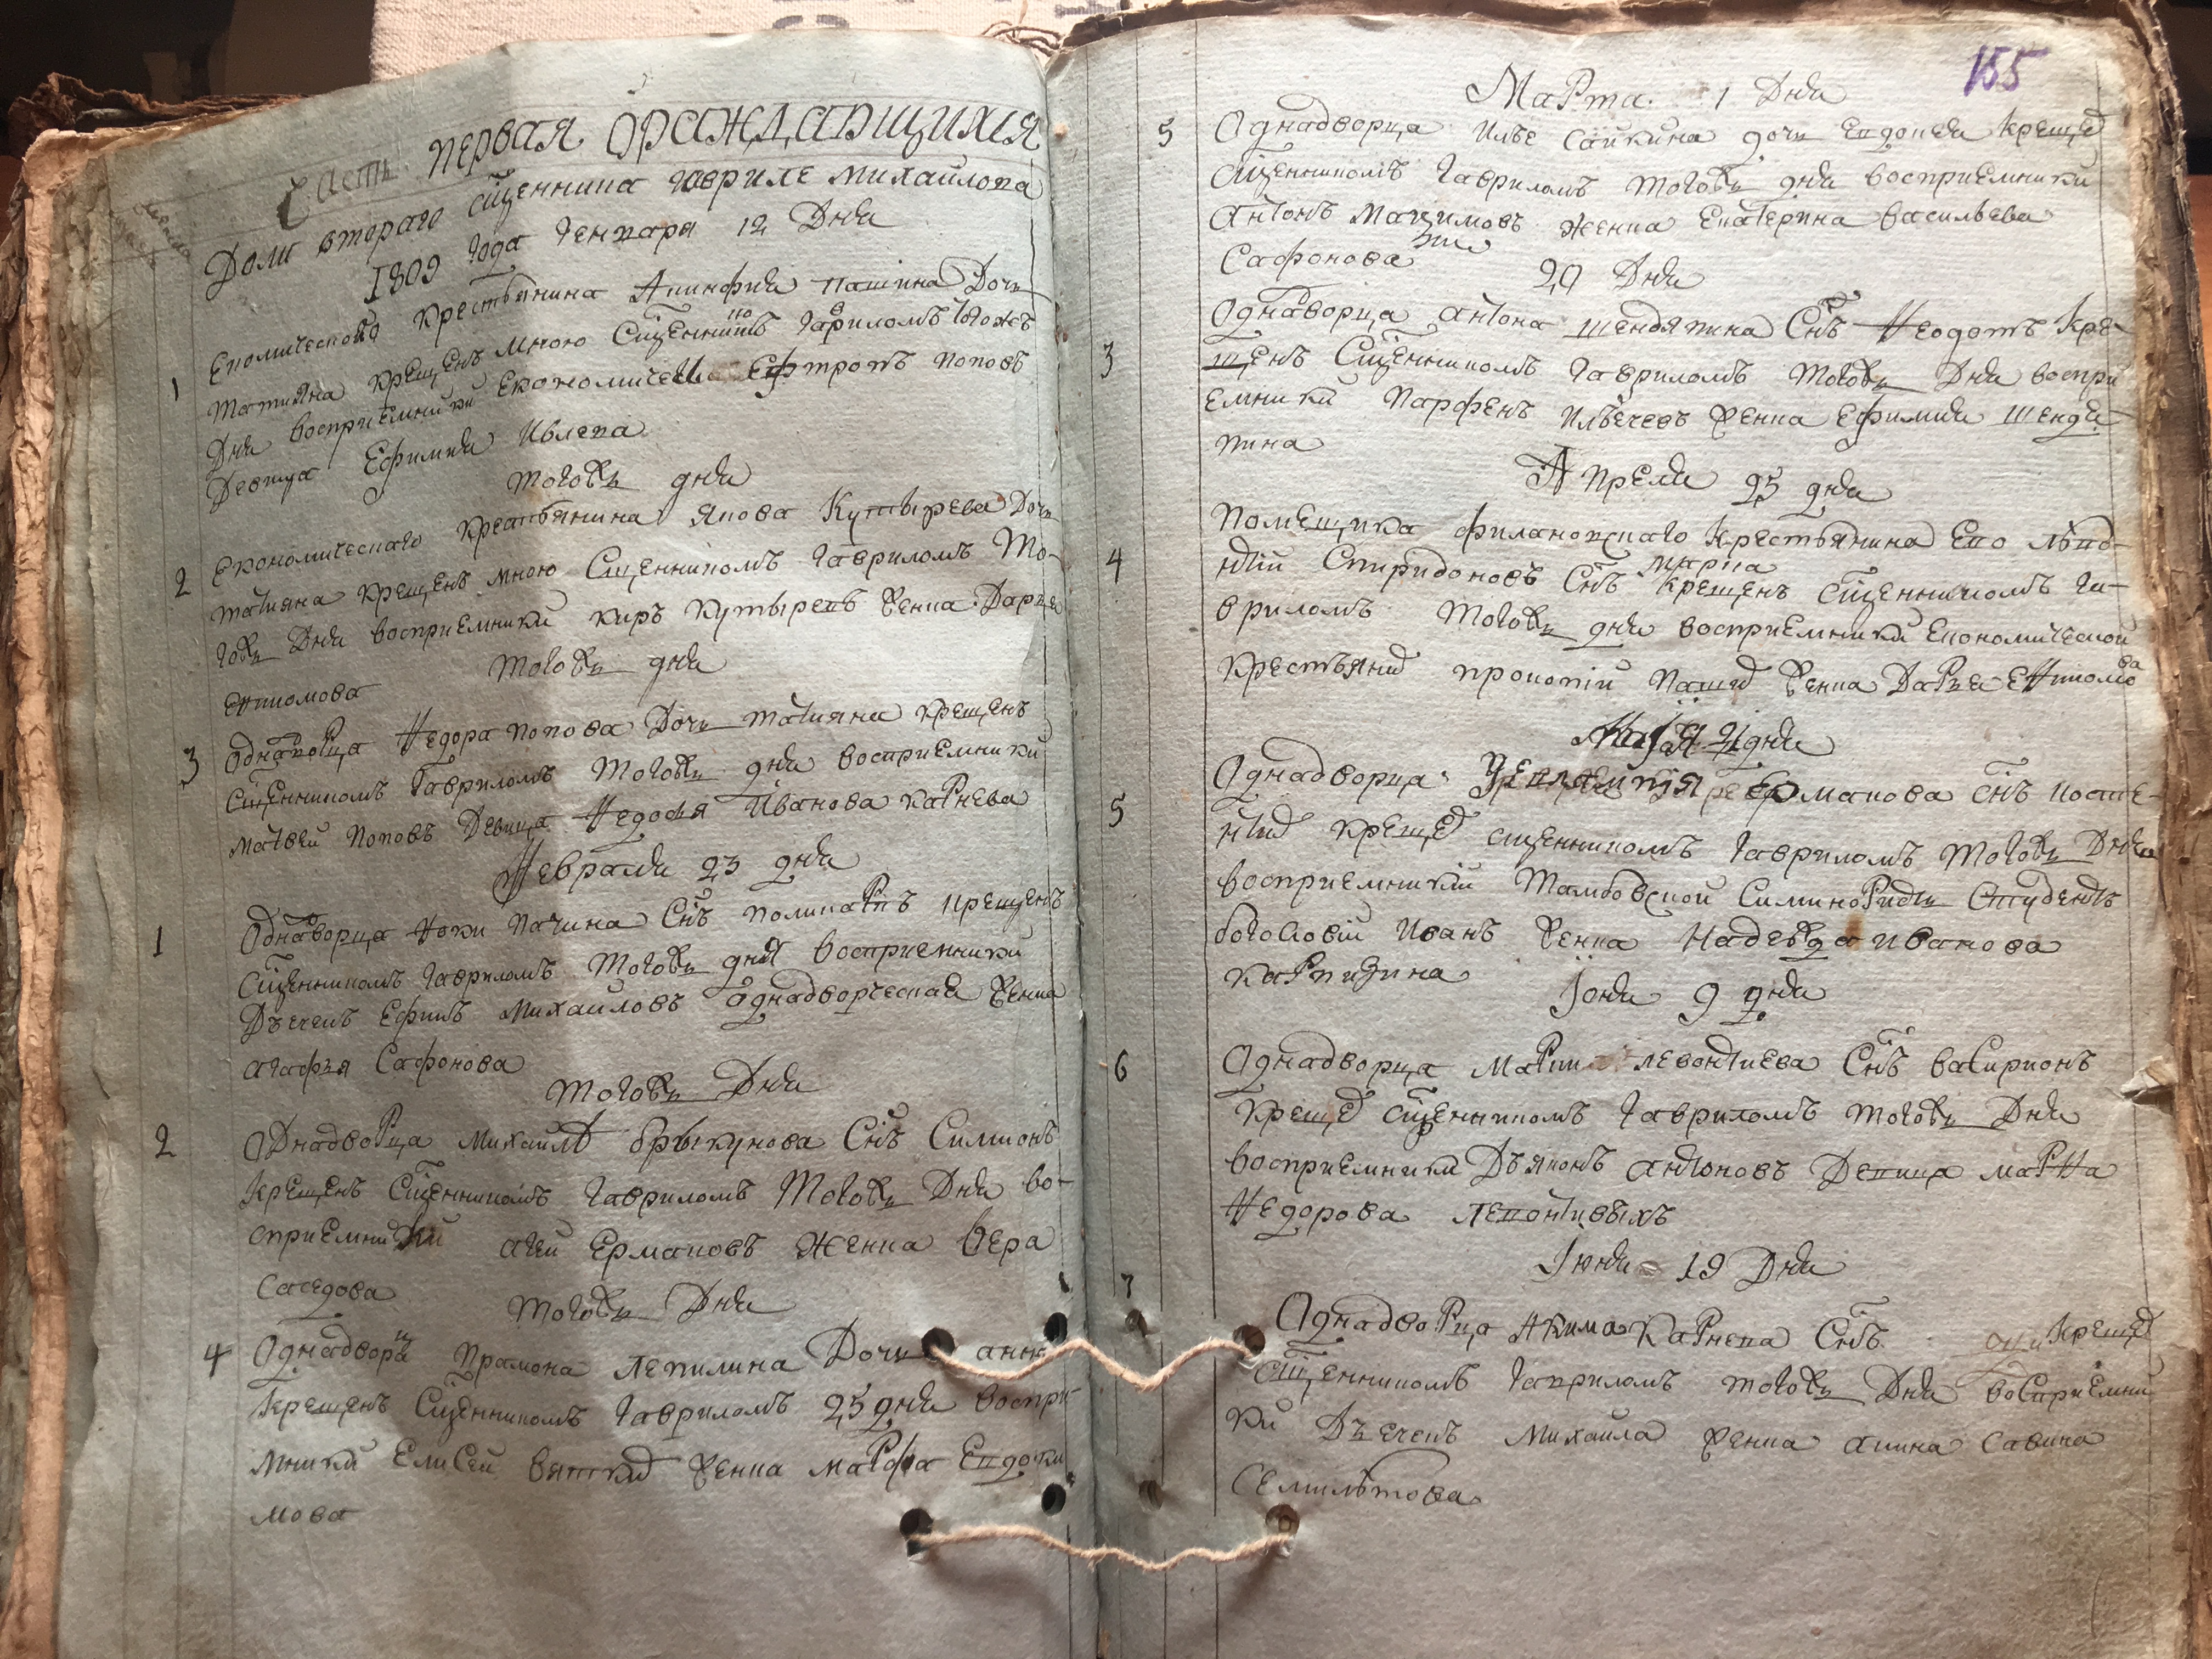 Часть первая ораждающихся
Доли втораго сщенника гавриле михайлова
1809 года Генваря 12 Дня
1 Економическаго крестьянина Агинфия пашина Дочь
татияна крещенъ мною Сщенникомъ Гавриломъ тогожъ
Дня восприемники Економической Ефтропъ поповъ
Девица Ефимия Ивлева
тогожъ дня
2 Економическаго крестьянина якова Кутырева Дочь
татияна крещенъ мною Сщенникомъ Гавриломъ То-
гожъ Дня восприемники киръ кутыревъ женка Дарья
ектиомова
тогожъ дня
3 Однаворца Ѳедора попова Дочь татияна крещенъ
сщенникомъ Гавриломъ тогожъ дня восприемники
матвей поповъ Девица Ѳедосья Иванова карнева
Ѳевраля 23 дня
1 Однаворца Ѳоки пачина Снъ поликарпъ крещенъ
сщенникомъ Гавриломъ тогожъ дня восприемники
Дьечекъ Ефимъ Михайловъ однадворческая женка
агафья Сафонова
тогожъ Дня
2 Однадворца михаилы брыкунова Снъ Симионъ
крещенъ Сщенникомъ Гавриломъ Тогожъ Дня во-
сприемники агей Ермаковъ женка Вера
Саседова
тогожъ Дня
4 Однадворца Прамона лепилина Дочь анна
крещенъ Сщенникомъ Гавриломъ 25 дня воспри-
мники Елисей вяткид женка марфа Евдоки
мова
155
Марта 1 Дня
5 Однадворца Илье сайкина дочь Евдокея крещед
сщенникомъ Гавриломъ тогожъ дня восприемники
Антонъ мацимовъ женка Екатерина васильева
Сафонова
20 Дня
3 Однаворца антона шендяпина Снъ Ѳеодотъ кре-
щенъ Сщенникомъ Гавриломъ тогожъ Дня воспри
емники парфенъ Ильечевъ женка Ефимия шендя
пина
Апреля 25 дня
4 помещика филановскаго крестьянина Ево
Спиридоновъ Снъ марка крещенъ сщенникомъ Га-
вриломъ тогожъ дня восприемники Економической
крестьянид прокопий пашид женка Дарья
Майя 21 дня
5 Однадворца Ермакова снъ косте-
нтид крещед сщенникомъ Гавриломъ тогожъ Дня
восприемникий тамбовской Симинориды Студентъ
богословий Иванъ женка Надежда иванова
карпизина
Іюня 9 дня
6 Однадворца марки левонтиева Снъ васирионъ
крещед сщенникомъ Гавриломъ тогожъ Дня
восприемники Дьяконъ антоновъ Девица марѲа
Ѳедорова левонтивыхъ
Іюня 19 Дня
7 Однадворца Акима карнева Снъ крещед
сщенникомъ гавриломъ тогожъ Дня восприемни
ки Дьечекъ михаила женка акина савина
семилѣтова